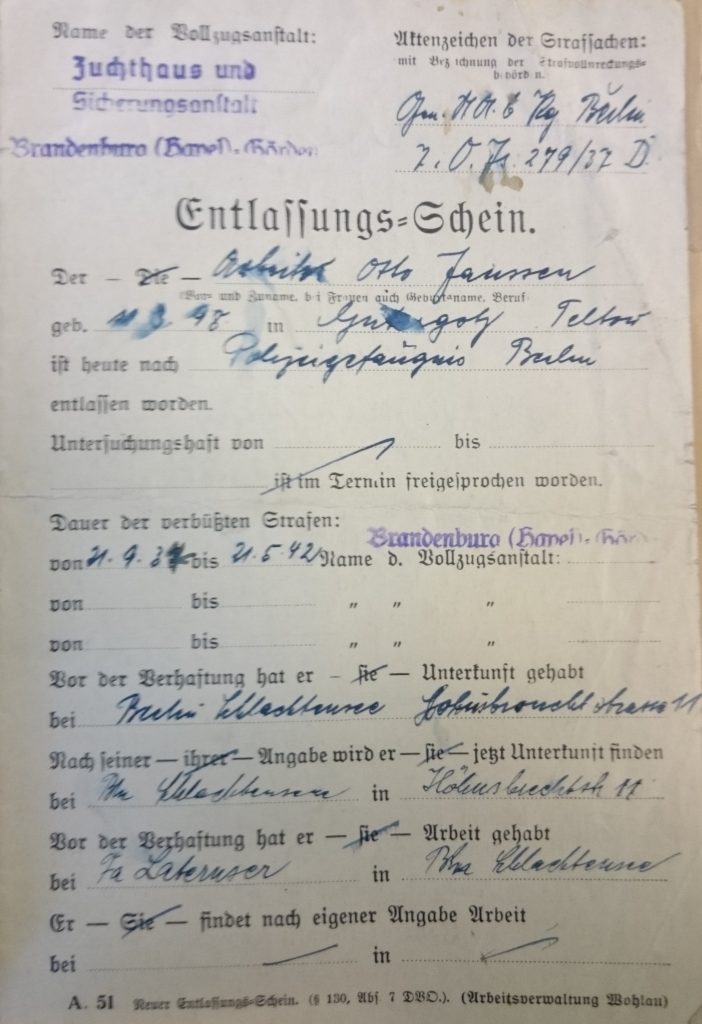 Name der Vollzugsanstalt:
Zuchthaus und
Sicherungsanstalt
Brandenburg (Havel)-Görden
Aktenzeichen der Strafsachen:
mit Bezeichnung der Strafvollstreckungs-
behörden.
Berlin
279/37
Entlassungs-Schein.
Der — Die — Arbeiter Otto Janssen
Vor- und Zuname, bei Frauen auch Geburtsname. Beruf
geb. 98 in Gütergotz Teltow
ist heute nach Polizeigefängnis Berlin
entlassen worden.
Untersuchungshaft von bis
ist im Termin freigesprochen worden.
Dauer der verbüßten Strafen:
Brandenburg (Havel)-Görden
von 21.9.37 bis 21.5.42 Name d. Vollzugsanstalt:
von bis " " "
von bis " " "
Vor der Verhaftung hat er — sie — Unterkunft gehabt
bei Berlin Schlachtensee strasse 11
Nach seiner — ihrer — Angabe wird er — sie — jetzt Unterkunft finden
bei Bln Schlachtensee in 11
Vor der Verhaftung hat er — sie — Arbeit gehabt
bei Fa Laternser in Bln Schlachtensee
Er — Sie — findet nach eigener Angabe Arbeit
bei in
A. 51 Neuer Entlassungs-Schein. (§ 130, Abs. 7 DVO.). (Arbeitsverwaltung Wohlau)